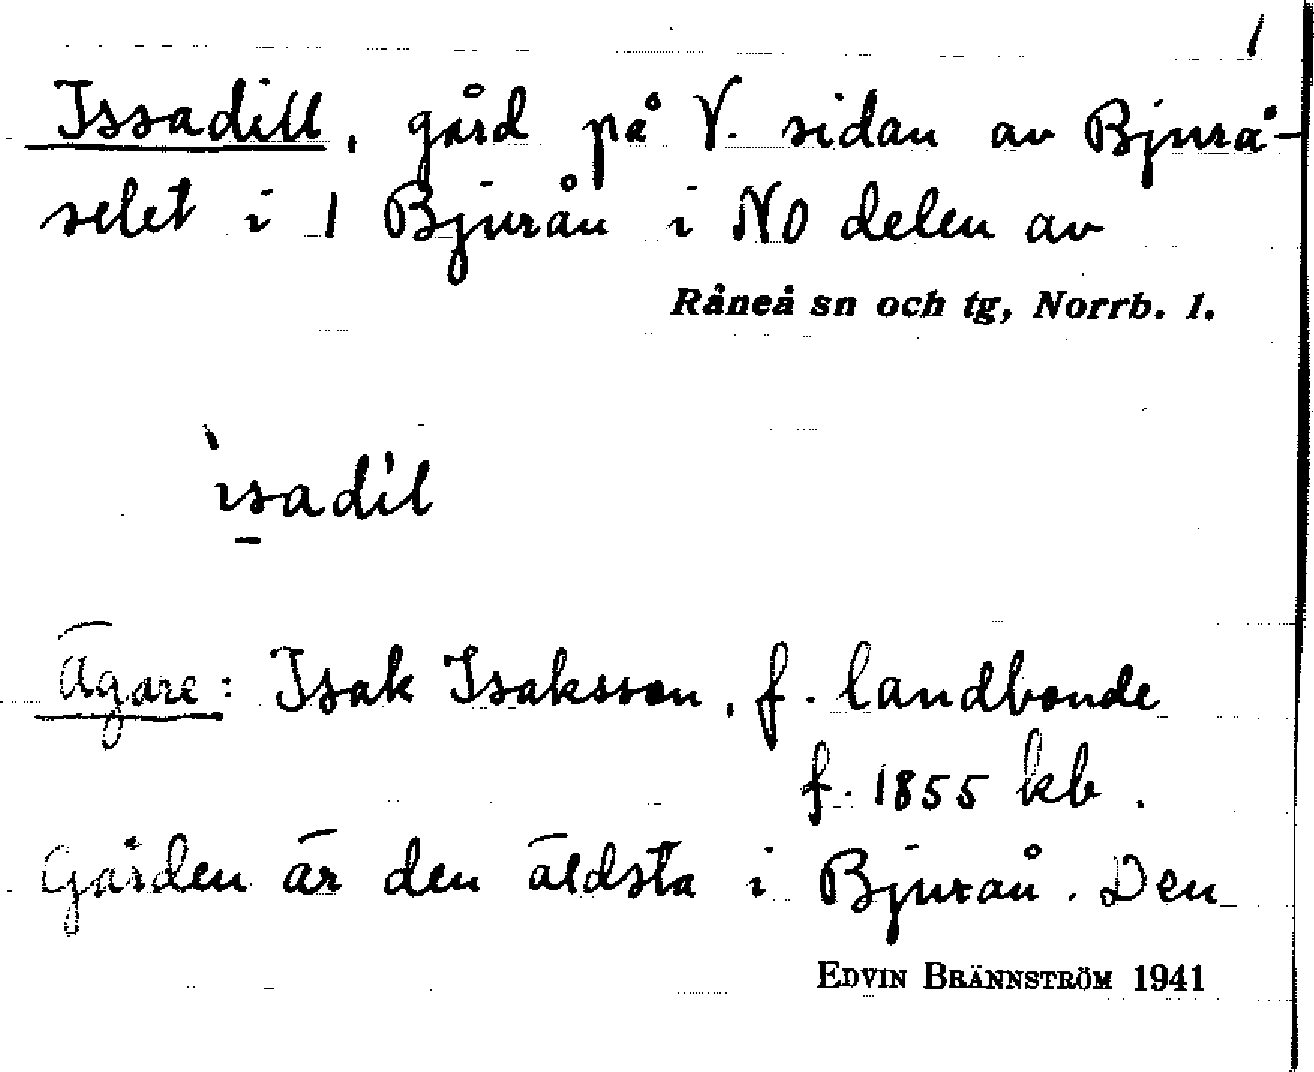 1
Issadill, gård på V. sidan av Bjurå-
selet i 1 Bjurån i NO delen av
Råneå sn och tg, Norrb. l.
`ısadi'l
Ägare: Isak Isaksson, f. landbonde
f. 1855 kb.
Gården är den äldsta i Bjurån. Den
EDVIN BRÄNNSTRÖM 1941